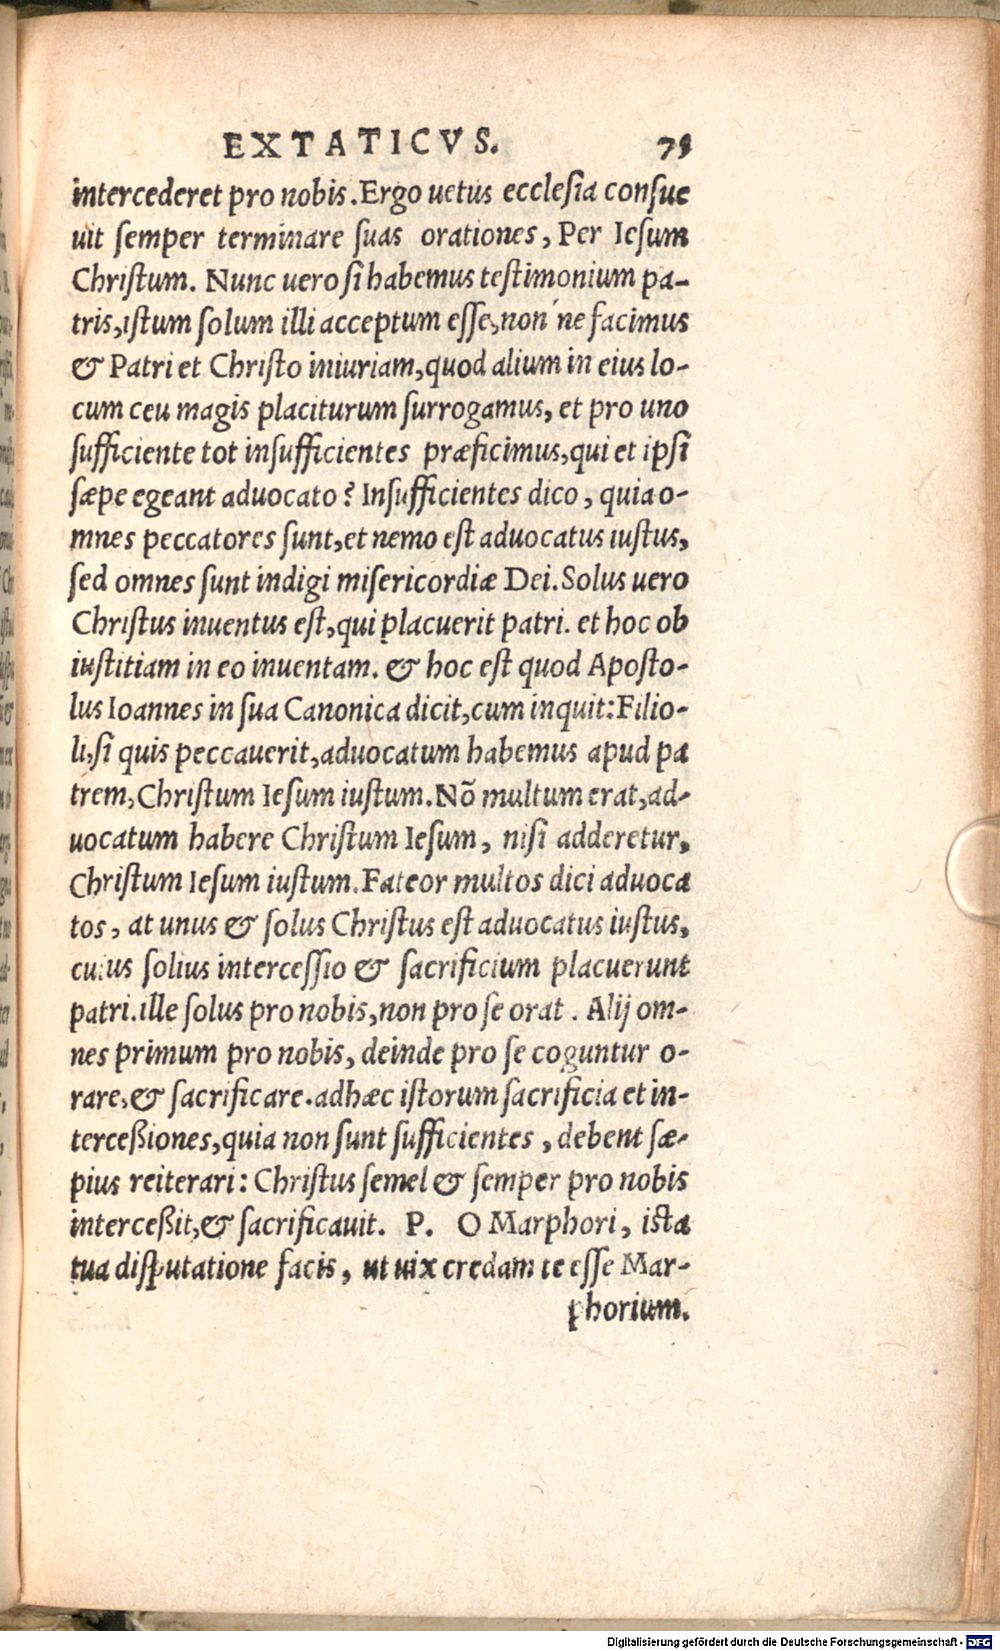 EXTATICVS. 79
intercederet pro nobis. Ergo uetus ecclesia consue
uit semper terminare suas orationes, Per Iesum
Christum. Nunc uero si habemus testimonium pa-
tris, istum solum illi acceptum esse, non´ne facimus
& Patri et Christo iniuriam, quod alium in eius lo-
cum ceu magis placiturum surrogamus, et pro uno
sufficiente tot insufficientes præficimus, qui et ipsi
sæpe egeant aduocato? Insufficientes dico, quia o-
mnes peccatores sunt, et nemo est aduocatus iustus,
sed omnes sunt indigi misericordiæ Dei. Solus uero
Christus inuentus est, qui placuerit patri. et hoc ob
iustitiam in eo inuentam. & hoc est quod Aposto-
lus Ioannes in sua Canonica dicit, cum inquit: Filio-
li, si quis peccauerit, aduocatum habemus apud pa
trem, Christum Iesum iustum. Nõ multum erat, ad-
uocatum habere Christum Iesum, nisi adderetur,
Christum Iesum iustum. Fateor multos dici aduoca
tos, at unus & solus Christus est aduocatus iustus,
cuius solius intercessio & sacrificium placuerunt
patri. ille solus pro nobis, non pro se orat. Alij om-
nes primum pro nobis, deinde pro se coguntur o-
rare, & sacrificare. adhæc istorum sacrificia et in-
terceßiones, quia non sunt sufficientes, debent sæ-
pius reiterari: Christus semel & semper pro nobis
interceßit, & sacrificauit. P. O Marphori, ista
tua disputatione facis, ut uix credam te esse Mar-
phorium.
Digitalisierung gefördert durch die Deutsche Forschungsgemeinschaft - DFG